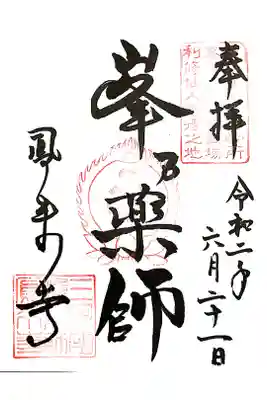 奉拝
令和二年
六月二十一日
峯乃薬師
鳳来寺